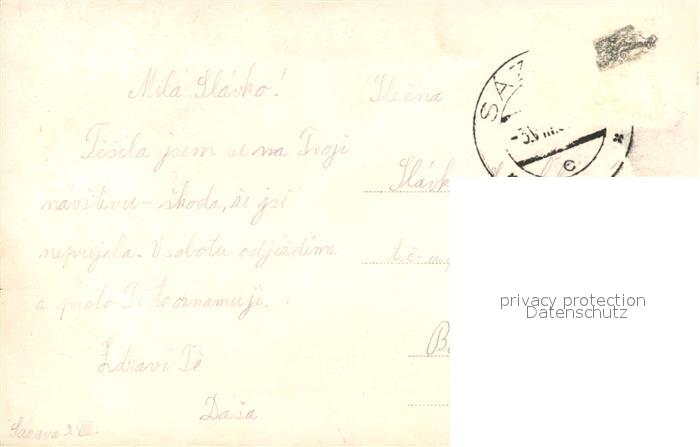 Milá Slávko!
Těšila jsem se na Tvoji
návštevu - škoda, že jsi
neprijela. V sobotu odjíždíme
a proto Ti to oznamuji.
Zdraví Tě
Daša
Sázava 3. VIII.
Slečna
Slávk
t.č. u
B
SÁZ
-3.VIII.
c
privacy protection
Datenschutz